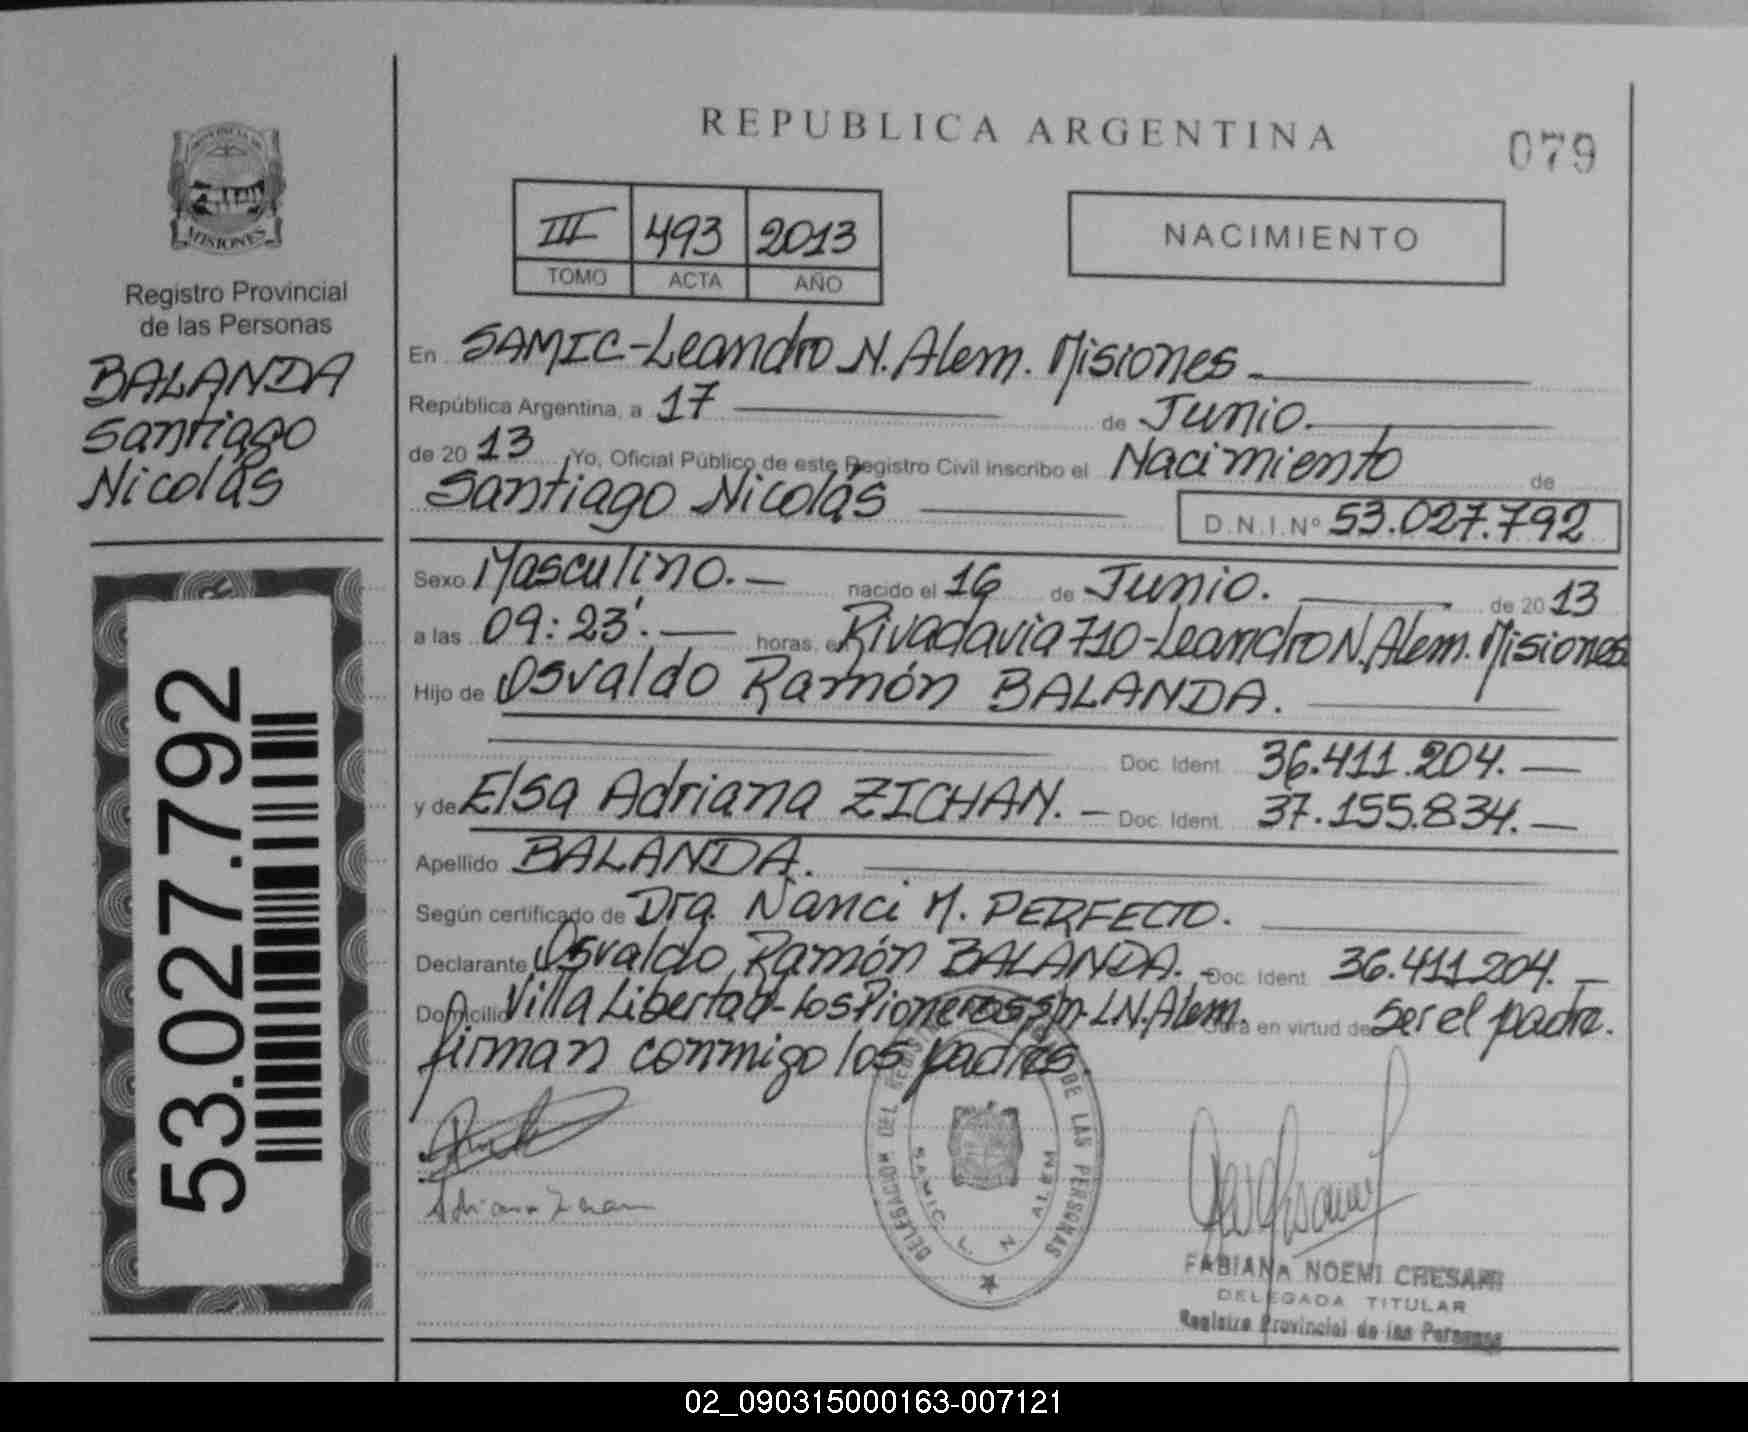 REPUBLICA ARGENTINA
079
PROVINCIA DE
MISIONES
Registro Provincial
de las Personas
BALANDA
Santiago
Nicolás
III 493 2013
TOMO ACTA AÑO
NACIMIENTO
En SAMIC-Leandro N. Alem. Misiones
República Argentina, a 17 de Junio.
de 2013 Yo, Oficial Público de este Registro Civil inscribo el Nacimiento de
Santiago Nicolás D.N.I.Nº 53.027.792
Sexo Masculino. nacido el 16 de Junio. de 2013
a las 09:23'. horas, en Rivadavia 710-Leandro N. Alem. Misiones
Hijo de Osvaldo Ramón BALANDA.
Doc. Ident. 36.411.204.
y de Elsa Adriana ZICHAN. Doc. Ident. 37.155.834.
Apellido BALANDA.
Según certificado de Dra. Nanci M. PERFECTO.
Declarante Osvaldo Ramón BALANDA. Doc. Ident. 36.411.204.
Domicilio Villa Libertad-Los Pioneros s/n. L.N. Alem. Obra en virtud de Ser el padre.
firman conmigo los padres.
53.027.792
DELEGACION DEL DE LAS PERSONAS
SAMIC L N ALEM
FABIANA NOEMI CRESARI
DELEGADA TITULAR
Registro Provincial de las Personas
02_090315000163-007121